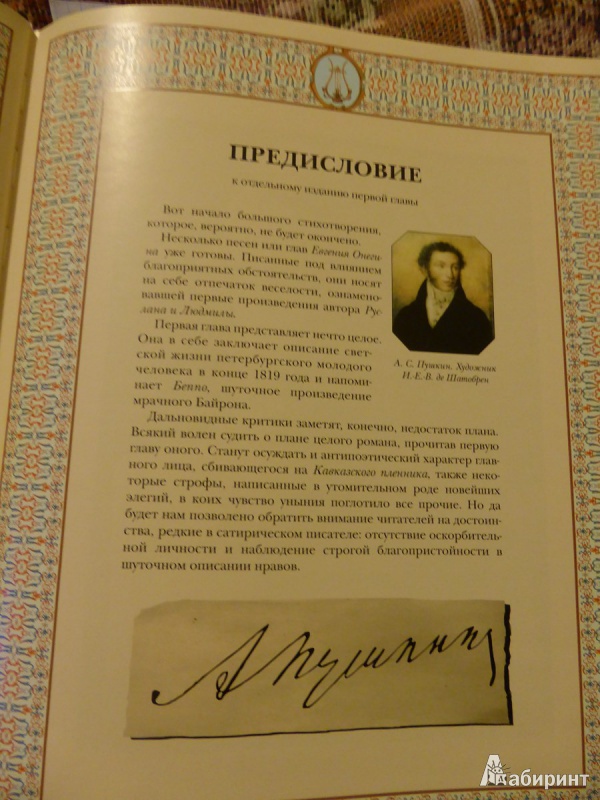 ПРЕДИСЛОВИЕ
к отдельному изданию первой главы
Вот начало большого стихотворения,
которое, вероятно, не будет окончено.
Несколько песен или глав Евгения Онеги-
на уже готовы. Писанные под влиянием
благоприятных обстоятельств, они носят
на себе отпечаток веселости, ознамено-
вавшей первые произведения автора Рус-
лана и Людмилы.
Первая глава представляет нечто целое.
Она в себе заключает описание свет-
ской жизни петербургского молодого
человека в конце 1819 года и напоми-
нает Беппо, шуточное произведение
мрачного Байрона.
А. С. Пушкин. Художник
И.-Е.-В. де Шатобрен
Дальновидные критики заметят, конечно, недостаток плана.
Всякий волен судить о плане целого романа, прочитав первую
главу оного. Станут осуждать и антипоэтический характер глав-
ного лица, сбивающегося на Кавказского пленника, также неко-
торые строфы, написанные в утомительном роде новейших
элегий, в коих чувство уныния поглотило все прочие. Но да
будет нам позволено обратить внимание читателей на достоин-
ства, редкие в сатирическом писателе: отсутствие оскорбитель-
ной личности и наблюдение строгой благопристойности в
шуточном описании нравов.
А Пушкинъ
Лабиринт